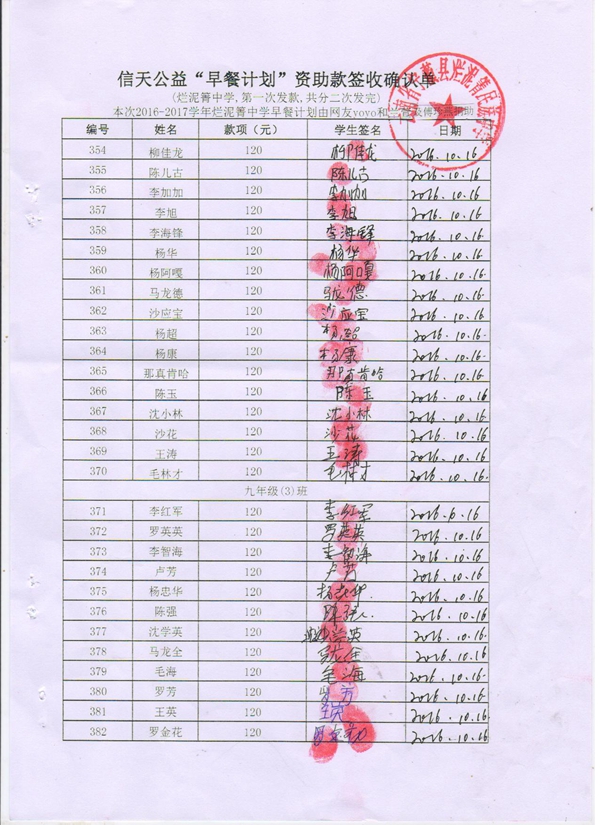 信天公益“早餐计划”资助款签收确认单
(烂泥箐中学,第一次发款,共分二次发完)
本次2016-2017学年烂泥箐中学早餐计划由网友yoyo和
编号 姓名 款项（元） 学生签名 日期
354 柳佳龙 120 柳佳龙 2016.10.16
355 陈儿古 120 陈儿古 2016.10.16
356 李加加 120 李加加 2016.10.16
357 李旭 120 李旭 2016.10.16
358 李海锋 120 李海锋 2016.10.16
359 杨华 120 杨华 2016.10.16
360 杨阿嘎 120 杨阿嘎 2016.10.16
361 马龙德 120 马龙德 2016.10.16
362 沙应宝 120 沙应宝 2016.10.16
363 杨超 120 杨超 2016.10.16
364 杨康 120 杨康 2016.10.16
365 那真肯哈 120 那真肯哈 2016.10.16
366 陈玉 120 陈玉 2016.10.16
367 沈小林 120 沈小林 2016.10.16
368 沙花 120 沙花 2016.10.16
369 王涛 120 王涛 2016.10.16
370 毛林才 120 毛林才 2016.10.16
九年级(3)班
371 李红军 120 李红军 2016.10.16
372 罗英英 120 罗英英 2016.10.16
373 李智海 120 李智海 2016.10.16
374 卢芳 120 卢芳 2016.10.16
375 杨忠华 120 杨忠华 2016.10.16
376 陈强 120 陈强 2016.10.16
377 沈学英 120 沈学英 2016.10.16
378 马龙全 120 马龙全 2016.10.16
379 毛海 120 毛海 2016.10.16
380 罗芳 120 罗芳 2016.10.16
381 王英 120 王英 2016.10.16
382 罗金花 120 2016.10.16